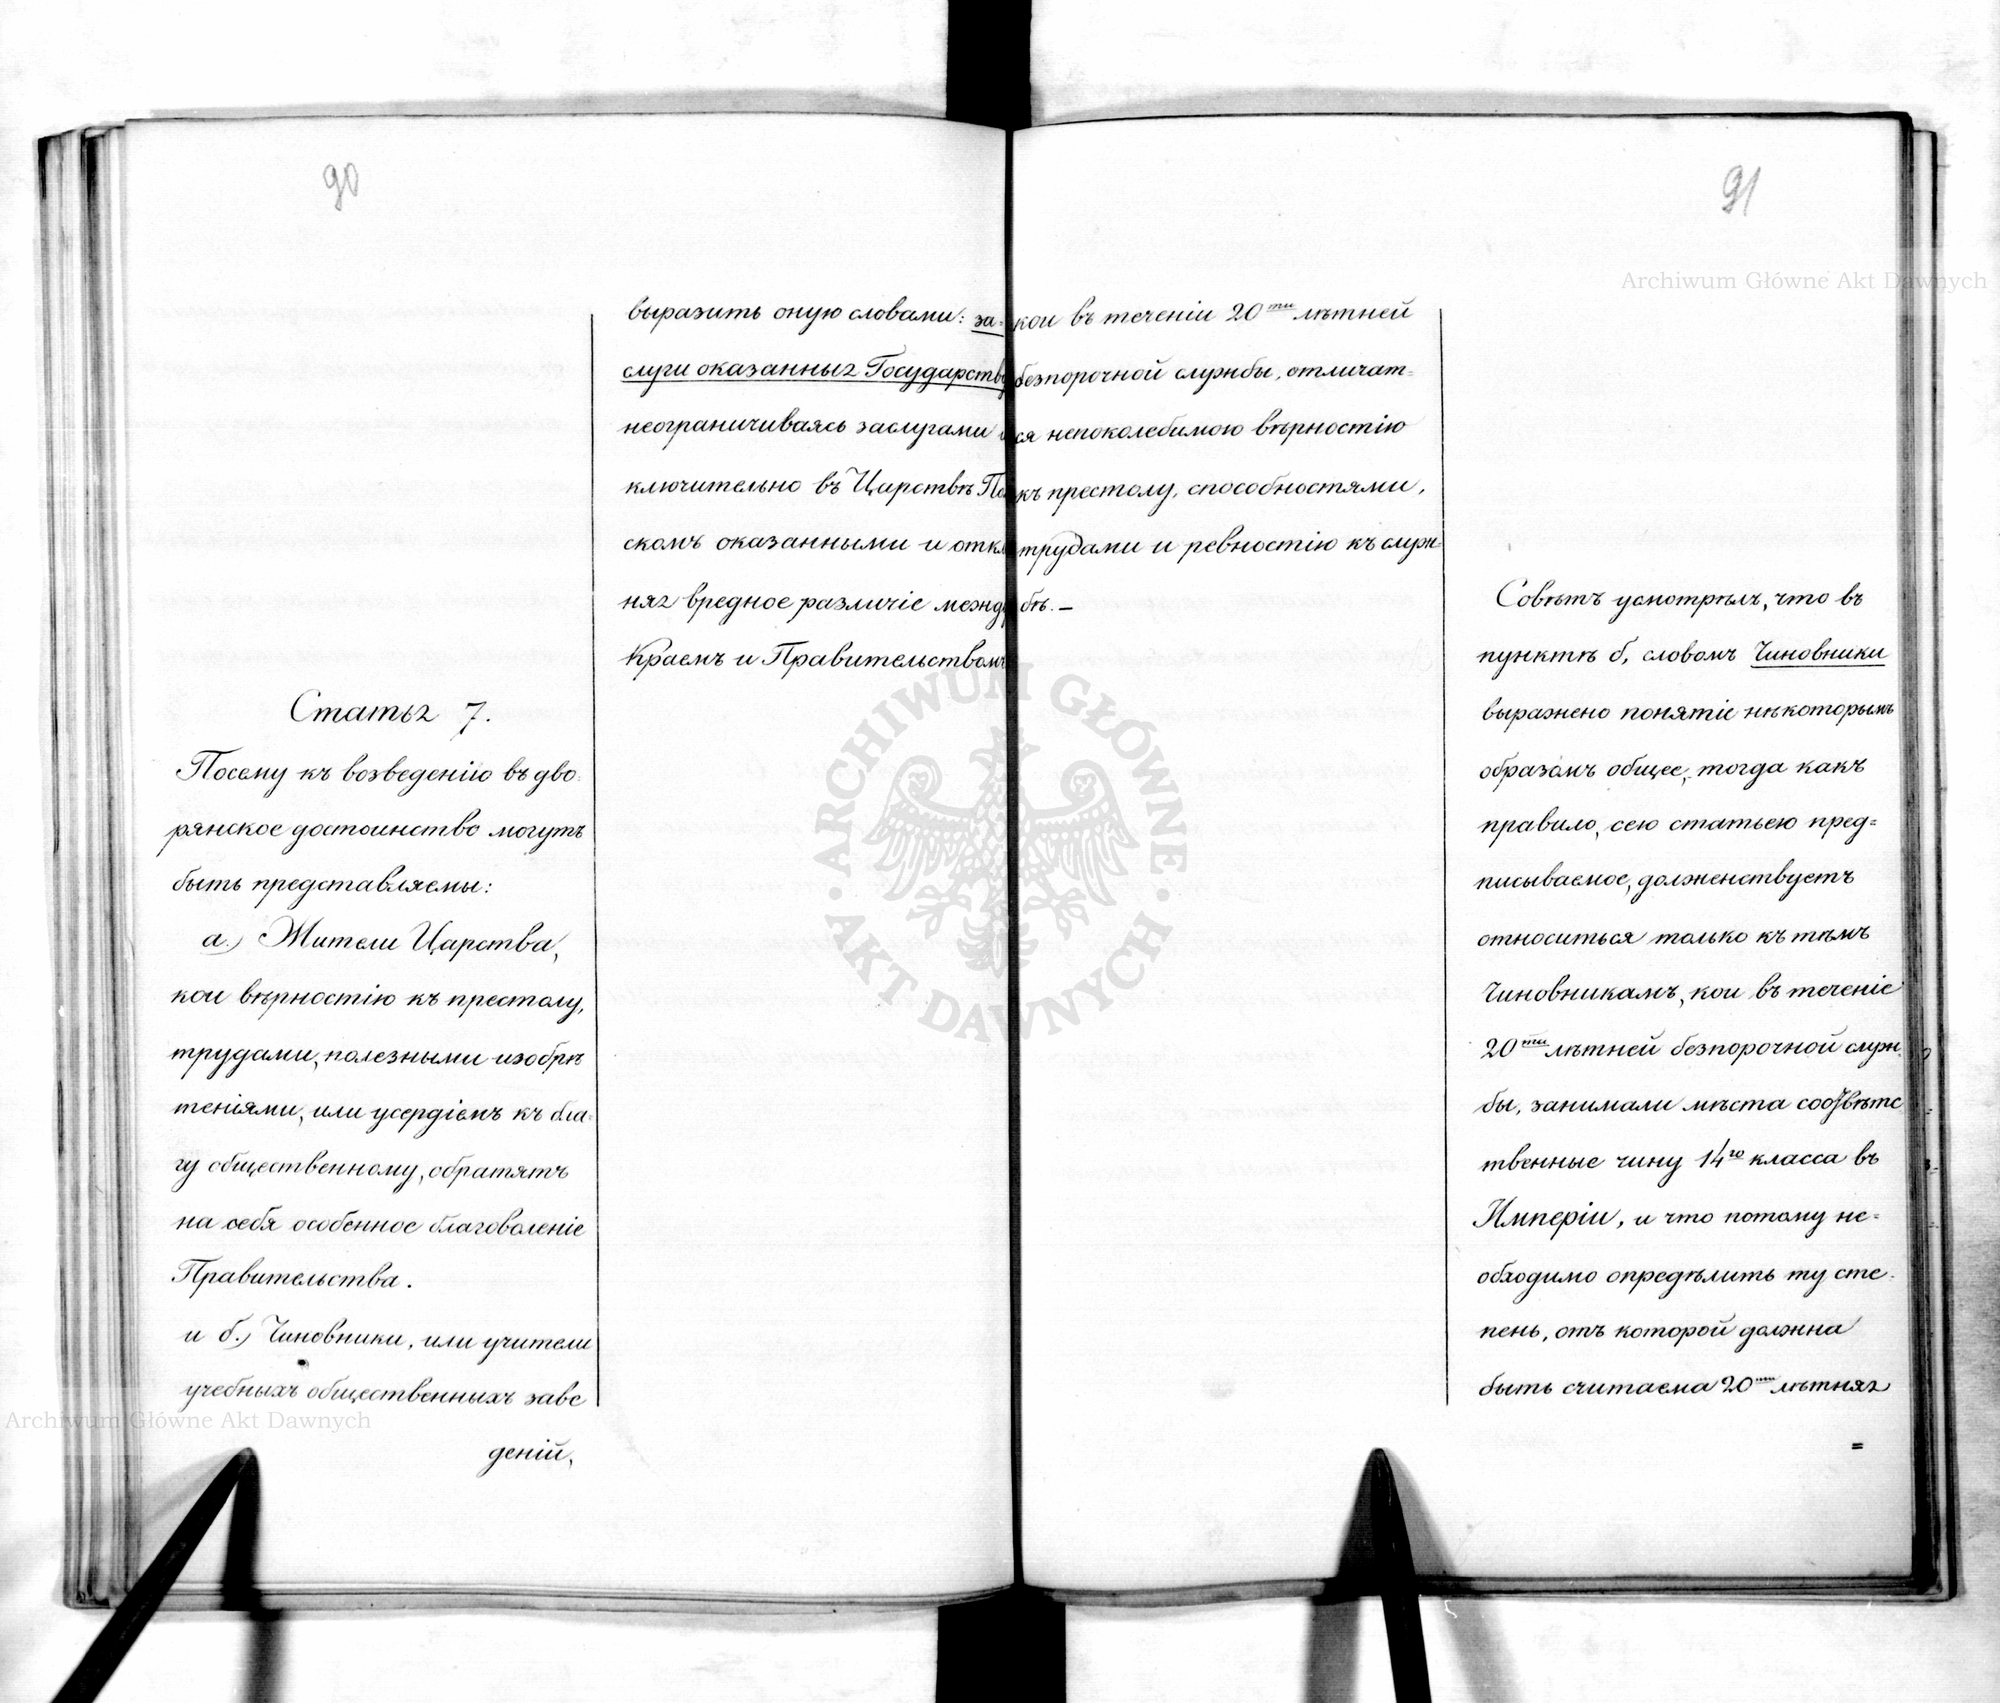 90
выразить оную словами: за-
слуги оказанныя Государству
неограничиваясь заслугами и
ключительно въ Царствѣ По
скомъ оказанными и откло
няя вредное различіе между
Краемъ и Правительствомъ
Статья 7.
Посему къ возведенію въ дво-
рянское достоинство могутъ
быть представляемы:
а.) Жители Царства,
кои вѣрностію къ престолу,
трудами, полезными изобрѣ
теніями, или усердіемъ къ бла-
гу общественному, обратятъ
на себя особенное благоволеніе
Правительства.
и б.) Чиновники, или учители
учебныхъ общественныхъ заве
деній,
91
кои въ теченіи 20ти лѣтней
безпорочной службы, отличат=
ся непоколебимою вѣрностію
къ престолу, способностями,
трудами и ревностію къ служ-
бѣ. –
Совѣтъ усмотрѣлъ, что въ
пунктѣ б, словомъ Чиновники
выражено понятіе нѣкоторымъ
образомъ общее, тогда какъ
правило, сею статьею пред=
писываемое, долженствуетъ
относиться только къ тѣмъ
Чиновникамъ, кои въ теченіе
20ти лѣтней безпорочной служ
бы, занимали мѣста соотвѣтс
твенные чину 14го класса въ
Имперіи, и что потому не=
обходимо опредѣлить ту сте-
пень, отъ которой должна
быть считаема 20ти лѣтняя
=
Archiwum Główne Akt Dawnych
Archiwum Główne Akt Dawnych
ARCHIWUM GŁÓWNE · AKT DAWNYCH ·